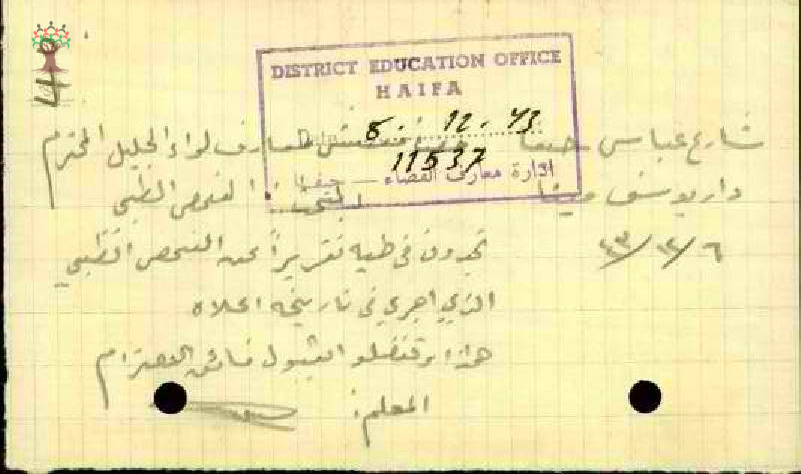 DISTRICT EDUCATION OFFICE
HAIFA
5. 12. 43
11537
ادارة معارف القضاء — حيفا
شارع عباس حيفا
مفتش معارف لواء الجليل المحترم
دار يوسف
الفحص الطبي
٦/١٢/٤٣
تجدون في طيه تقريراً عن الفحص الطبي
الذي اجري في تاريخه اعلاه
هذا وتفضلوا بقبول فائق الاحترام
المعلم: